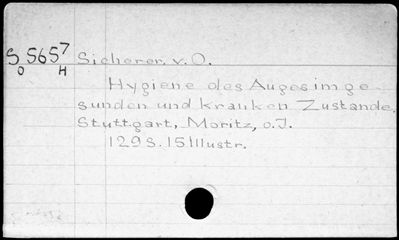 S 5657 Sicherer, v. O.
O H
Hygiene des Auges im ge-
sunden und kranken Zustande.
Stuttgart, Moritz, o.J.
129 S. 15 Illustr.